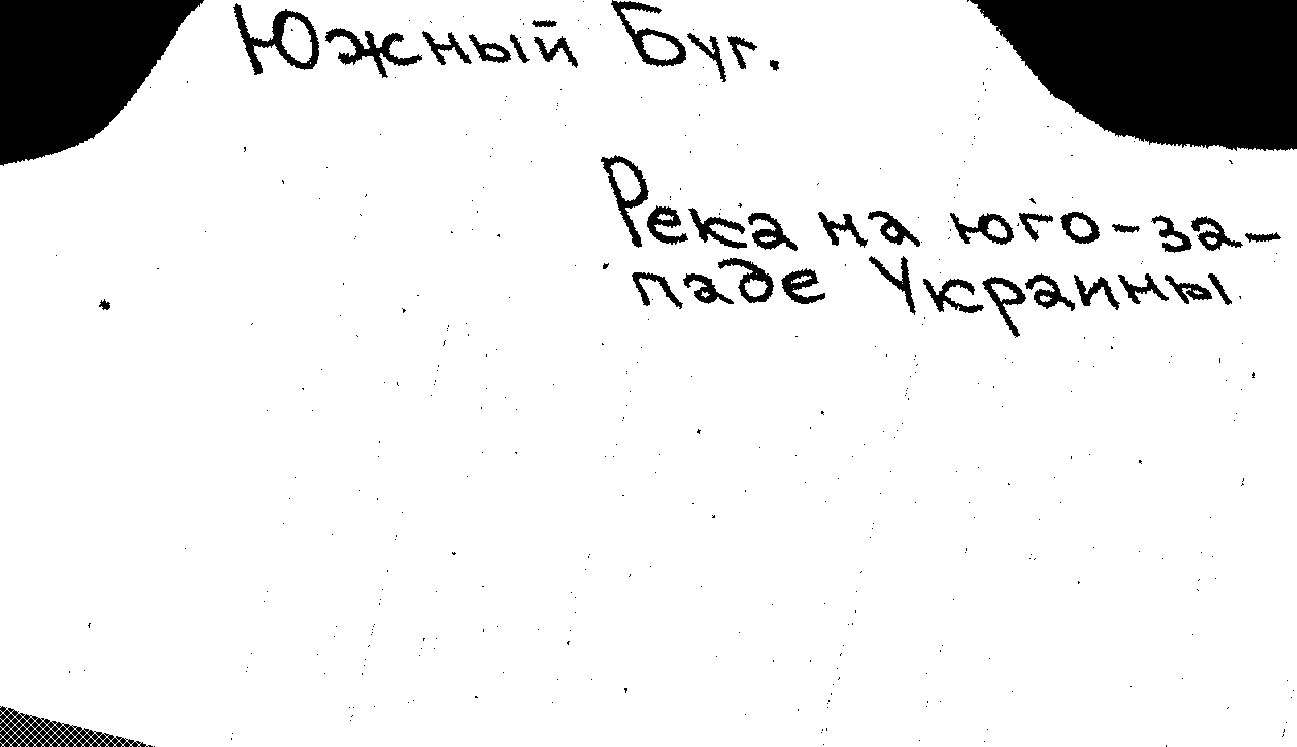 Южный Буг.
Река на юго-за-
паде Украины